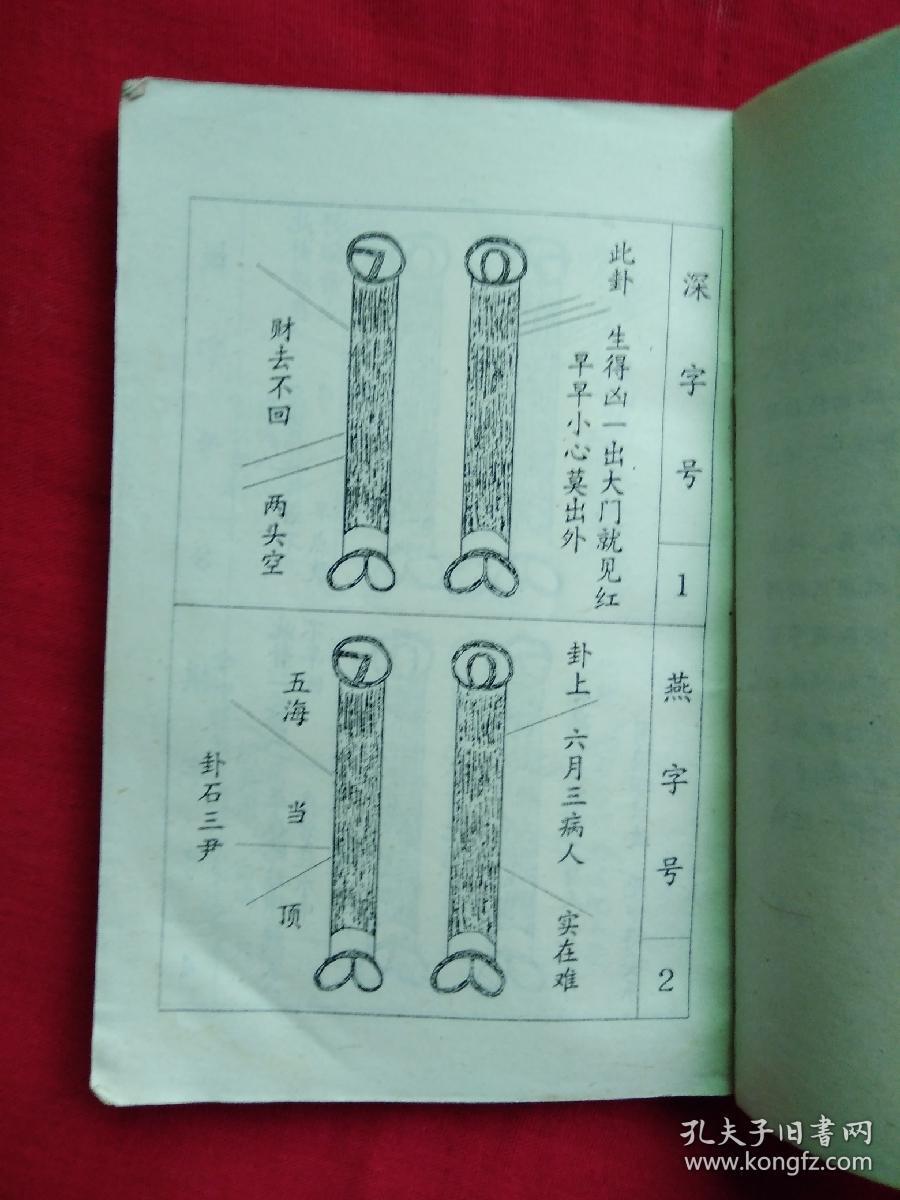 深字号
1
此卦 生得凶一出大门就见红
早早小心莫出外
财去不回 两头空
燕字号
2
卦上 六月三病人 实在难
五海 当 顶
卦石三尹
孔夫子旧書网
www.kongfz.com